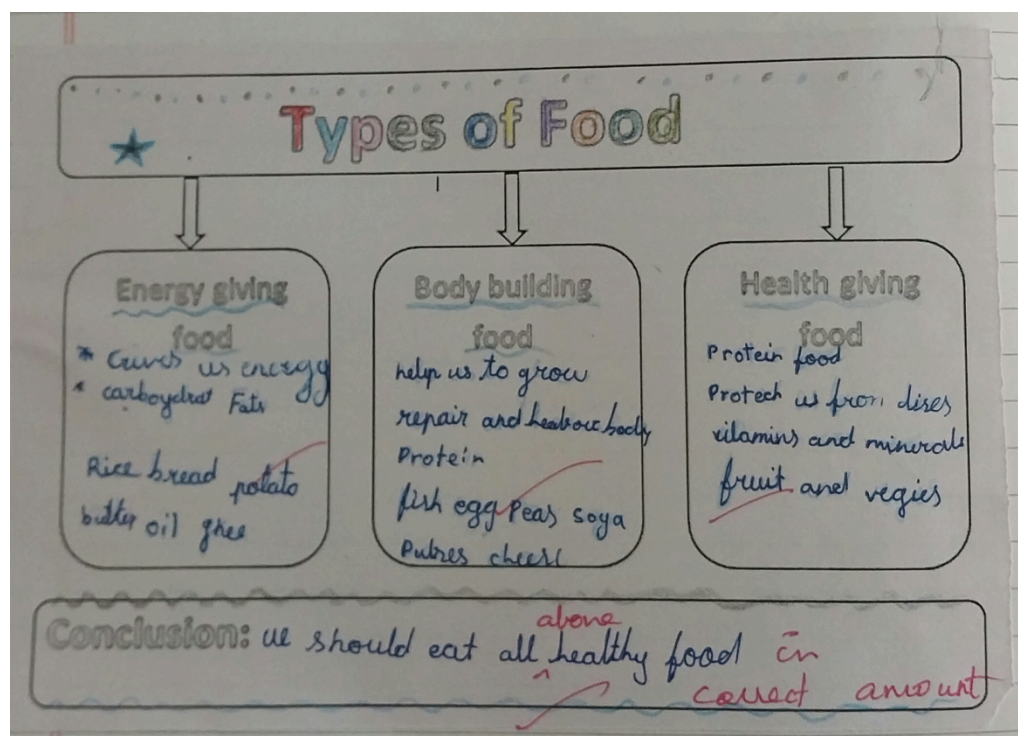 Types of Food
Energy giving
food
* Gives us energy
* carboydrat Fats
Rice bread potato
butter oil ghee
Body building
food
help us to grow
repair and heal our body
Protein
fish egg Peas soya
Pulses cheese
Health giving
food
Protein food
Protech us from dises
vitamins and minerals
fruit and vegies
Conclusion: we should eat all above healthy food in
correct amount